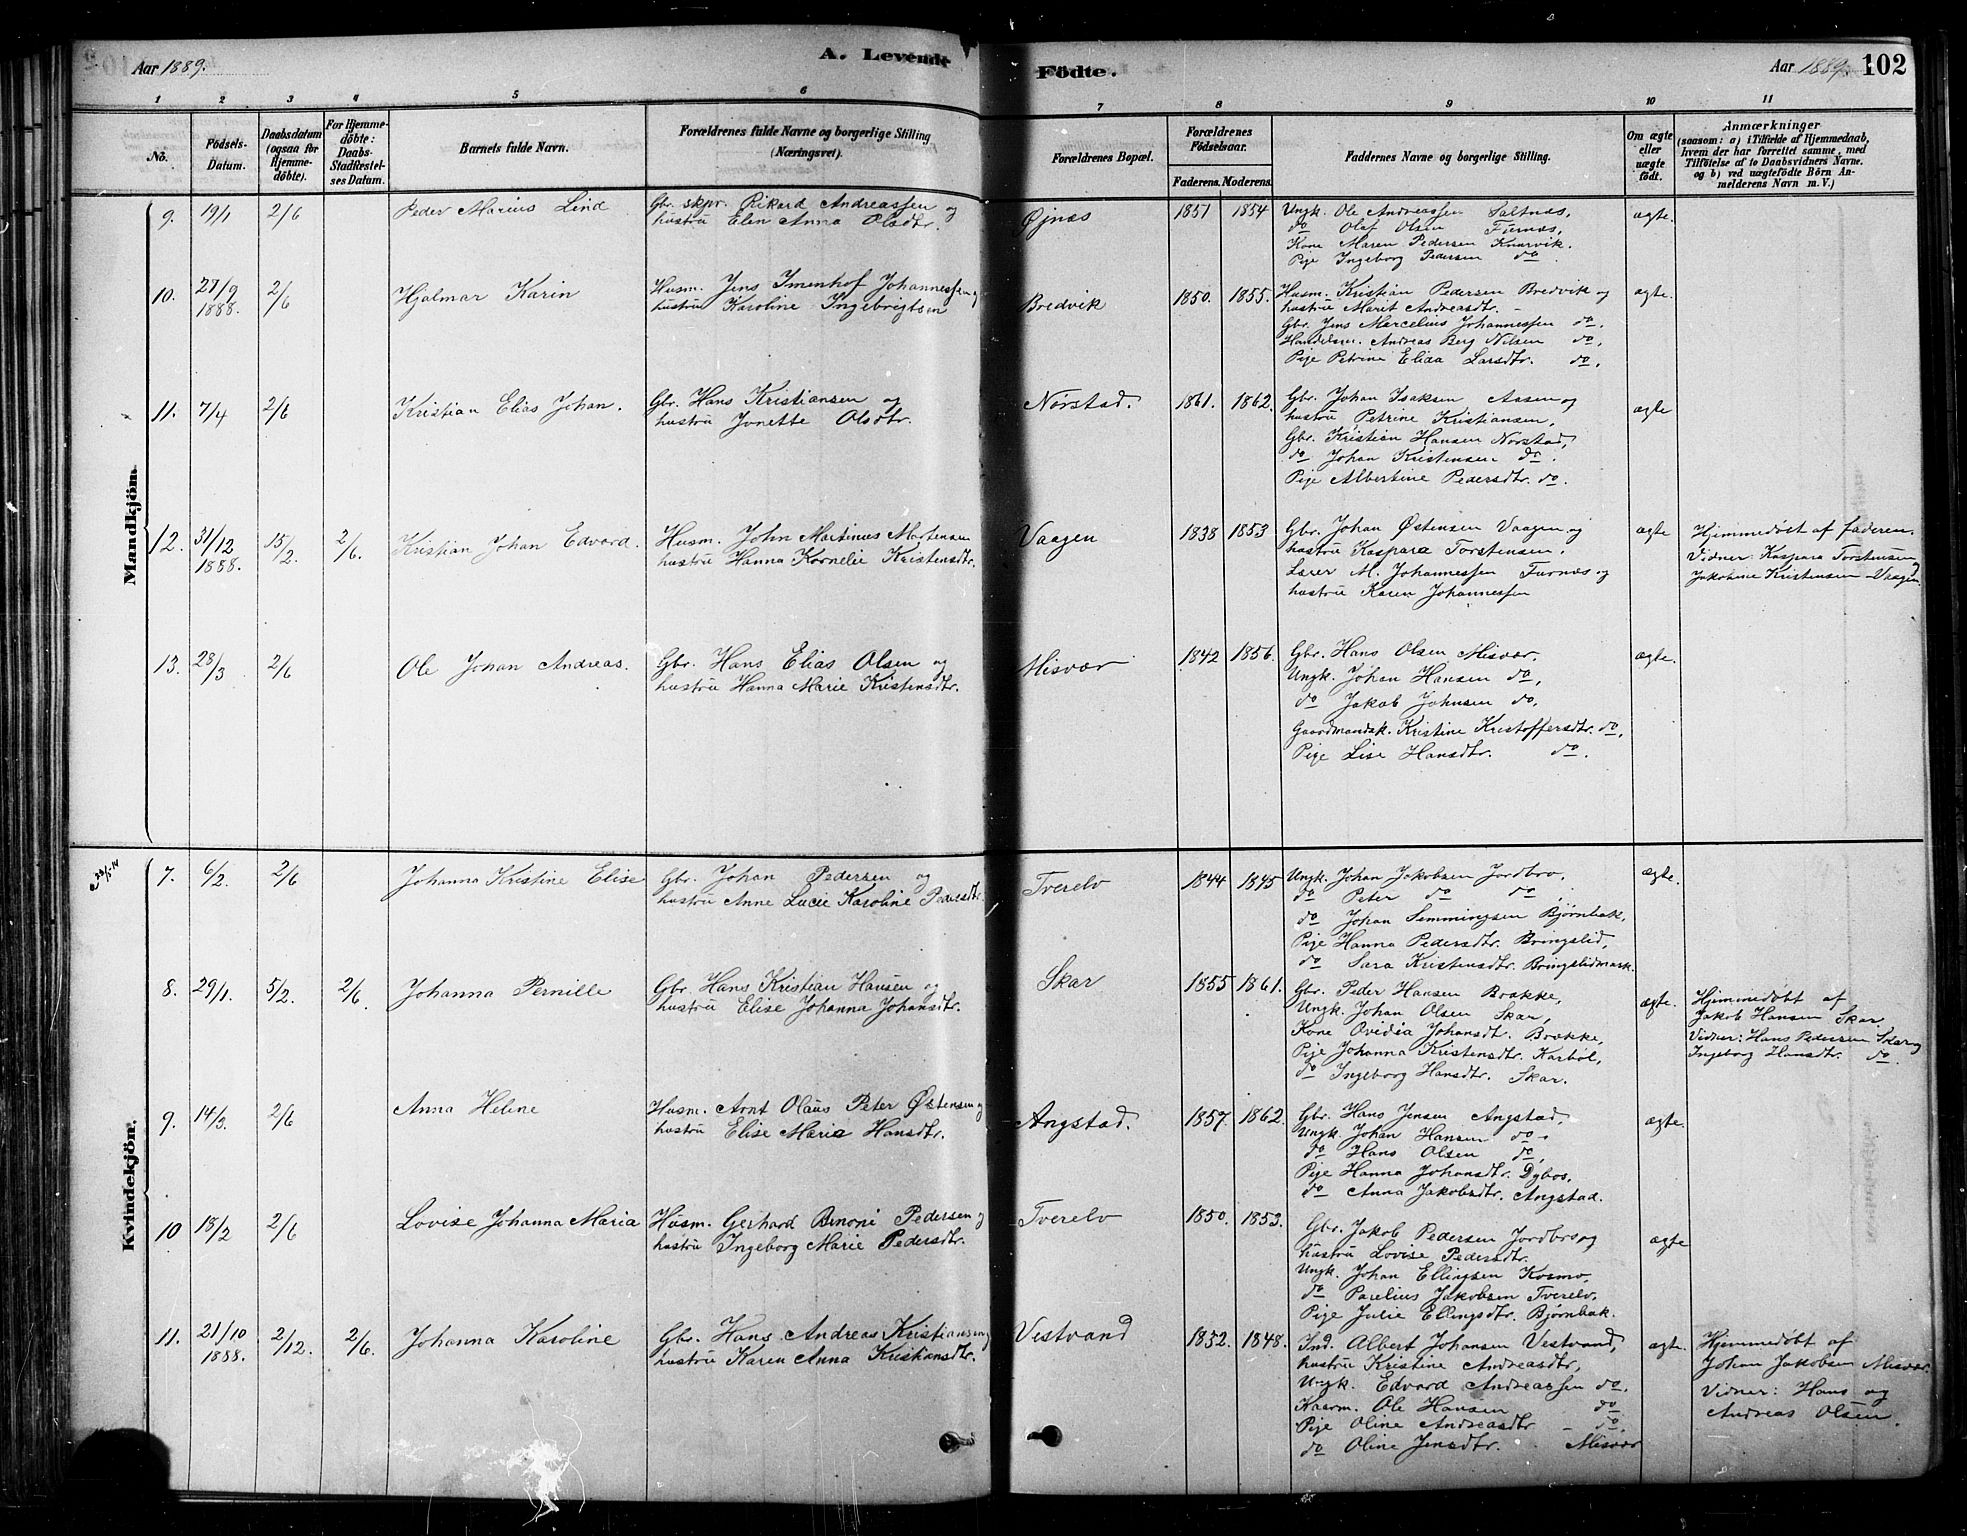 Aar 1889.
A. Levende Födte.
Aar 1889. 102
1 2 3 4 5 6 7 8 9 10 11
No.
Födsels-Datum.
Daabsdatum (ogsaa for Hjemme-döbte).
For Hjemme-döbte: Daabs-Stadfæstel-ses Datum.
Barnets fulde Navn.
Forældrenes fulde Navne og borgerlige Stilling (Næringsvei).
Forældrenes Bopæl.
Forældrenes Födselsaar.
Faderens. Moderens.
Faddernes Navne og borgerlige Stilling.
Om ægte eller uægte födt.
Anmærkninger
(saasom: a) i Tilfælde af Hjemmedaab, hvem der har forrettet samme, med Tilföielse af to Daabsvidners Navne. og b) ved uægtefödte Börn An-melderens Navn m. V.)
Mandkjön.
9. 19/1 2/6 Peder Marius Lind
Gbr. skpr. Rikard Andreassen og
hustru Elen Anna Olsdtr.
Øjnæs 1851 1854
Ungk. Ole Andreassen Saltnæs,
do Olaf Olsen Furnæs,
Kone Maren Pedersen Knarvik.
Pige Ingeborg Pedersen do
ægte.
10. 27/9 1888. 2/6 Hjalmar Karin
Husm. Jens Imenhof Johannessen og
hustru Karoline Ingebrigtsen
Bredvik 1850. 1855.
Husm. Kristian Pedersen Bredvik og
hustru Marit Andreasdtr. -
Gbr. Jens Marcelius Johannessen do.
Handelsm. Andreas Berg Nilsen do,
Pige Petrine Elisa Larsdtr. do,
ægte.
11. 7/4 2/6 Kristian Elias Johan.
Gbr. Hans Kristiansen og
hustru Jonette Olsdtr.
Nørstad. 1861. 1862.
Gbr. Johan Isaksen Aasen og
hustru Petrine Kristiansen,
Gbr. Kristian Hansen Nørstad,
do Johan Kristensen do.
Pige Albertine Pedersdtr. do.
ægte
12. 31/12 1888. 15/2. 2/6. Kristian Johan Edvard.
Husm. John Martinus Mortensen
hustru Hanna Kornelie Kristensdtr.
Vaagen 1838 1853
Gbr. Johan Østensen Vaagen og
hustru Kaspara Torstensen,
Lærer M. Johannessen Furnæs og
hustru Karen Johannessen
ægte
Hjemmedøbt af faderen.
Vidner: Kaspara Torstensen og
Jakobine Kristensen - Vaagen.
13. 28/3 2/6 Ole Johan Andreas.
Gbr. Hans Elias Olsen og
hustru Hanna Marie Kristensdtr.
Misvær 1842 1856.
Gbr. Hans Olsen Misvær,
Ungk. Johan Hansen do,
do Jakob Johnsen do,
Gaardmandsk. Kristine Kristoffersdtr. do,
Pige Lise Hansdtr. do.
ægte.
Kvindekjön.
7. 6/2. 2/6 Johanna Kristine Elise
Gbr. Johan Pedersen og
hustru Anne Lucie Karoline Pedersdtr.
Tverelv 1844 1845
Ungk. Johan Jakobsen Jordbro,
do Peter do do,
do Johan Semmingsen Bjørnbak,
Pige Hanna Pedersdtr. Bringslid,
do Sara Kristensdtr. Bringslidmark.
ægte.
8. 29/1. 5/2. 2/6. Johanna Pernille
Gbr. Hans Kristian Hansen og
hustru Elise Johanna Johansdtr.
Skar 1855 1861.
Gbr. Peder Hansen Brække,
Ungk. Johan Olsen Skar,
Kone Ovidia Johansdt. Brække,
Pige Johanna Kristensdtr. Karbøl,
do Ingeborg Hansdtr. Skar.
ægte.
Hjemmedøbt af
Jakob Hansen Skar.
Vidner: Hans Pedersen Skar og
Ingeborg Hansdtr. do.
9. 14/3. 2/6 Anna Heline
Husm. Arnt Olaus Peter Østensen og
hustru Elise Maria Hansdtr.
Angstad. 1857. 1862.
Gbr. Hans Jensen Angstad,
Ungk. Johan Hansen do.
do Hans Olsen do,
Pige Hanna Johansdtr. Dybos,
do Anna Jakobsdtr. Angstad.
ægte.
10 18/2 2/6 Lovise Johanna Maria
Husm. Gerhard Benoni Pedersen og
hustru Ingeborg Marie Pedersdtr.
Tverelv 1850. 1853.
Gbr. Jakob Pedersen Jordbro og
hustru Lovise Pedersdtr.
Ungk. Johan Ellingsen Kosmo,
do Paulius Jakobsen Tverelv.
Pige Julie Ellingsdtr. Bjørnbak.
ægte
11. 21/10 1888. 2/12. 2/6. Johanna Karoline
Gbr. Hans Andreas Kristiansen og
hustru Karen Anna Kristiansdtr.
Vestvand 1832. 1848.
Ind. Albert Johansen Vestvand,
hustru Kristine Andreasdtr,
Ungk. Edvard Andreassen do.
Kaarm. Ole Hansen do
Pige Oline Andreasdtr - do.
do Oline Jensdtr. Misvær
ægte.
Hjemmedøbt af
Johan Jakobsen Misvær.
Vidner: Hans og
Andreas Olsen.